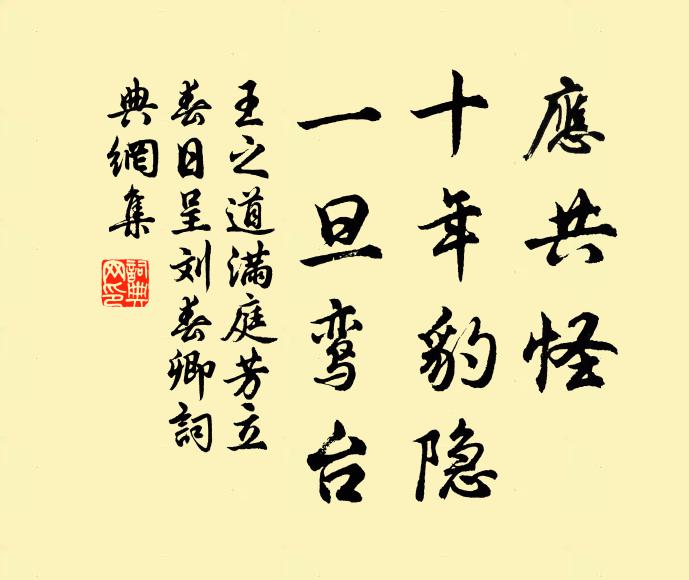 應共怪
十年豹隐
一旦鸾台
王之道滿庭芳立
春日呈刘春卿詞
典網集
詞典网印